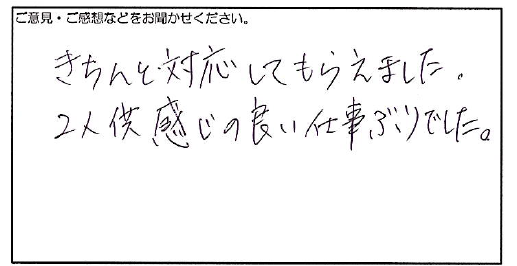 ご意見・ご感想などをお聞かせください。
きちんと対応してもらえました。
2人供感じの良い仕事ぶりでした。